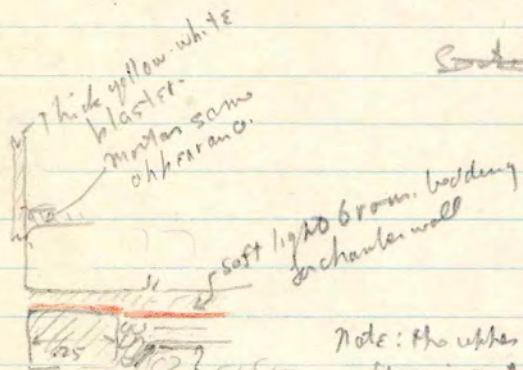 Thick yellow-white
plaster.
Mortar same
appearance.
soft light brown bedding
for chamber wall
.25
Note: the upper